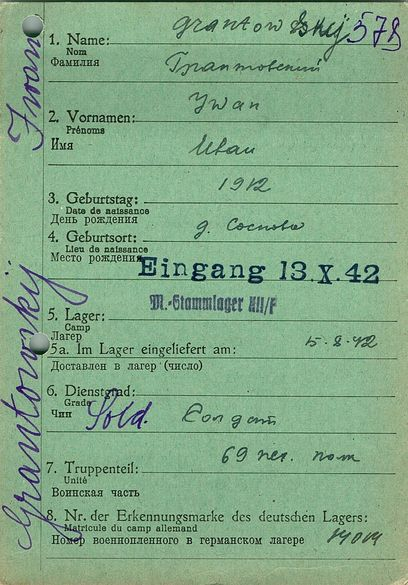 Grantowskij 578
1. Name:
Nom
Фамилия Грантовский
Iwan
2. Vornamen:
Prénoms
Имя Иван
1912
3. Geburtstag:
Date de naissance
День рождения
4. Geburtsort: д. Соснова
Lieu de naissance
Место рождения
Eingang 13.X.42
M.-Stammlager XII/F
5. Lager:
Camp
Лагерь
5a. Im Lager eingeliefert am: 15-8-42
Доставлен в лагер (число)
6. Dienstgrad:
Grade
Чин Sold. Солдат
69
7. Truppenteil:
Unité
Воинская часть
8. Nr. der Erkennungsmarke des deutschen Lagers:
Matricule du camp allemand
Номер военнопленного в германском лагере
Grantowskij Iwan